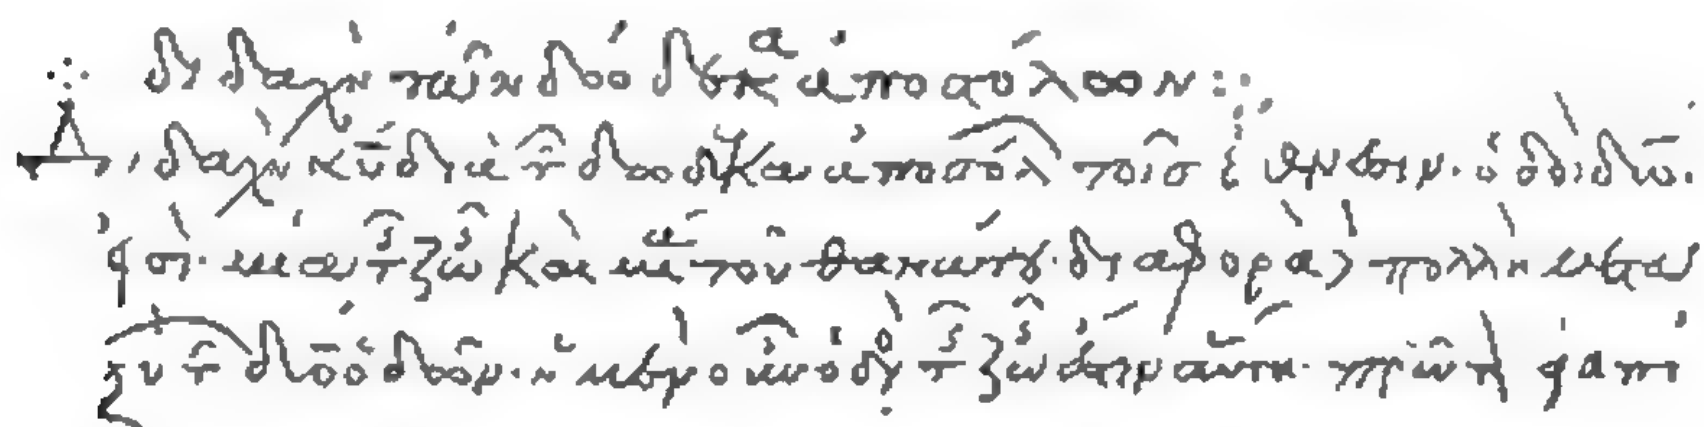 διδαχὴ τῶν δώδεκα ἀποστόλων:
διδαχὴ κυ διὰ τῶν δώδεκα ἀποστόλων τοῖς ἔθνεσιν· ὁδοὶ δύο
εἰσὶ· μία τῆς ζωῆς καὶ μία τοῦ θανάτου· διαφορὰ δὲ πολλὴ μετα
ξὺ τῶν δύο ὁδῶν· ἡ μὲν οὖν ὁδὸς τῆς ζωῆς ἐστιν αὕτη· πρῶτον ἀγαπή